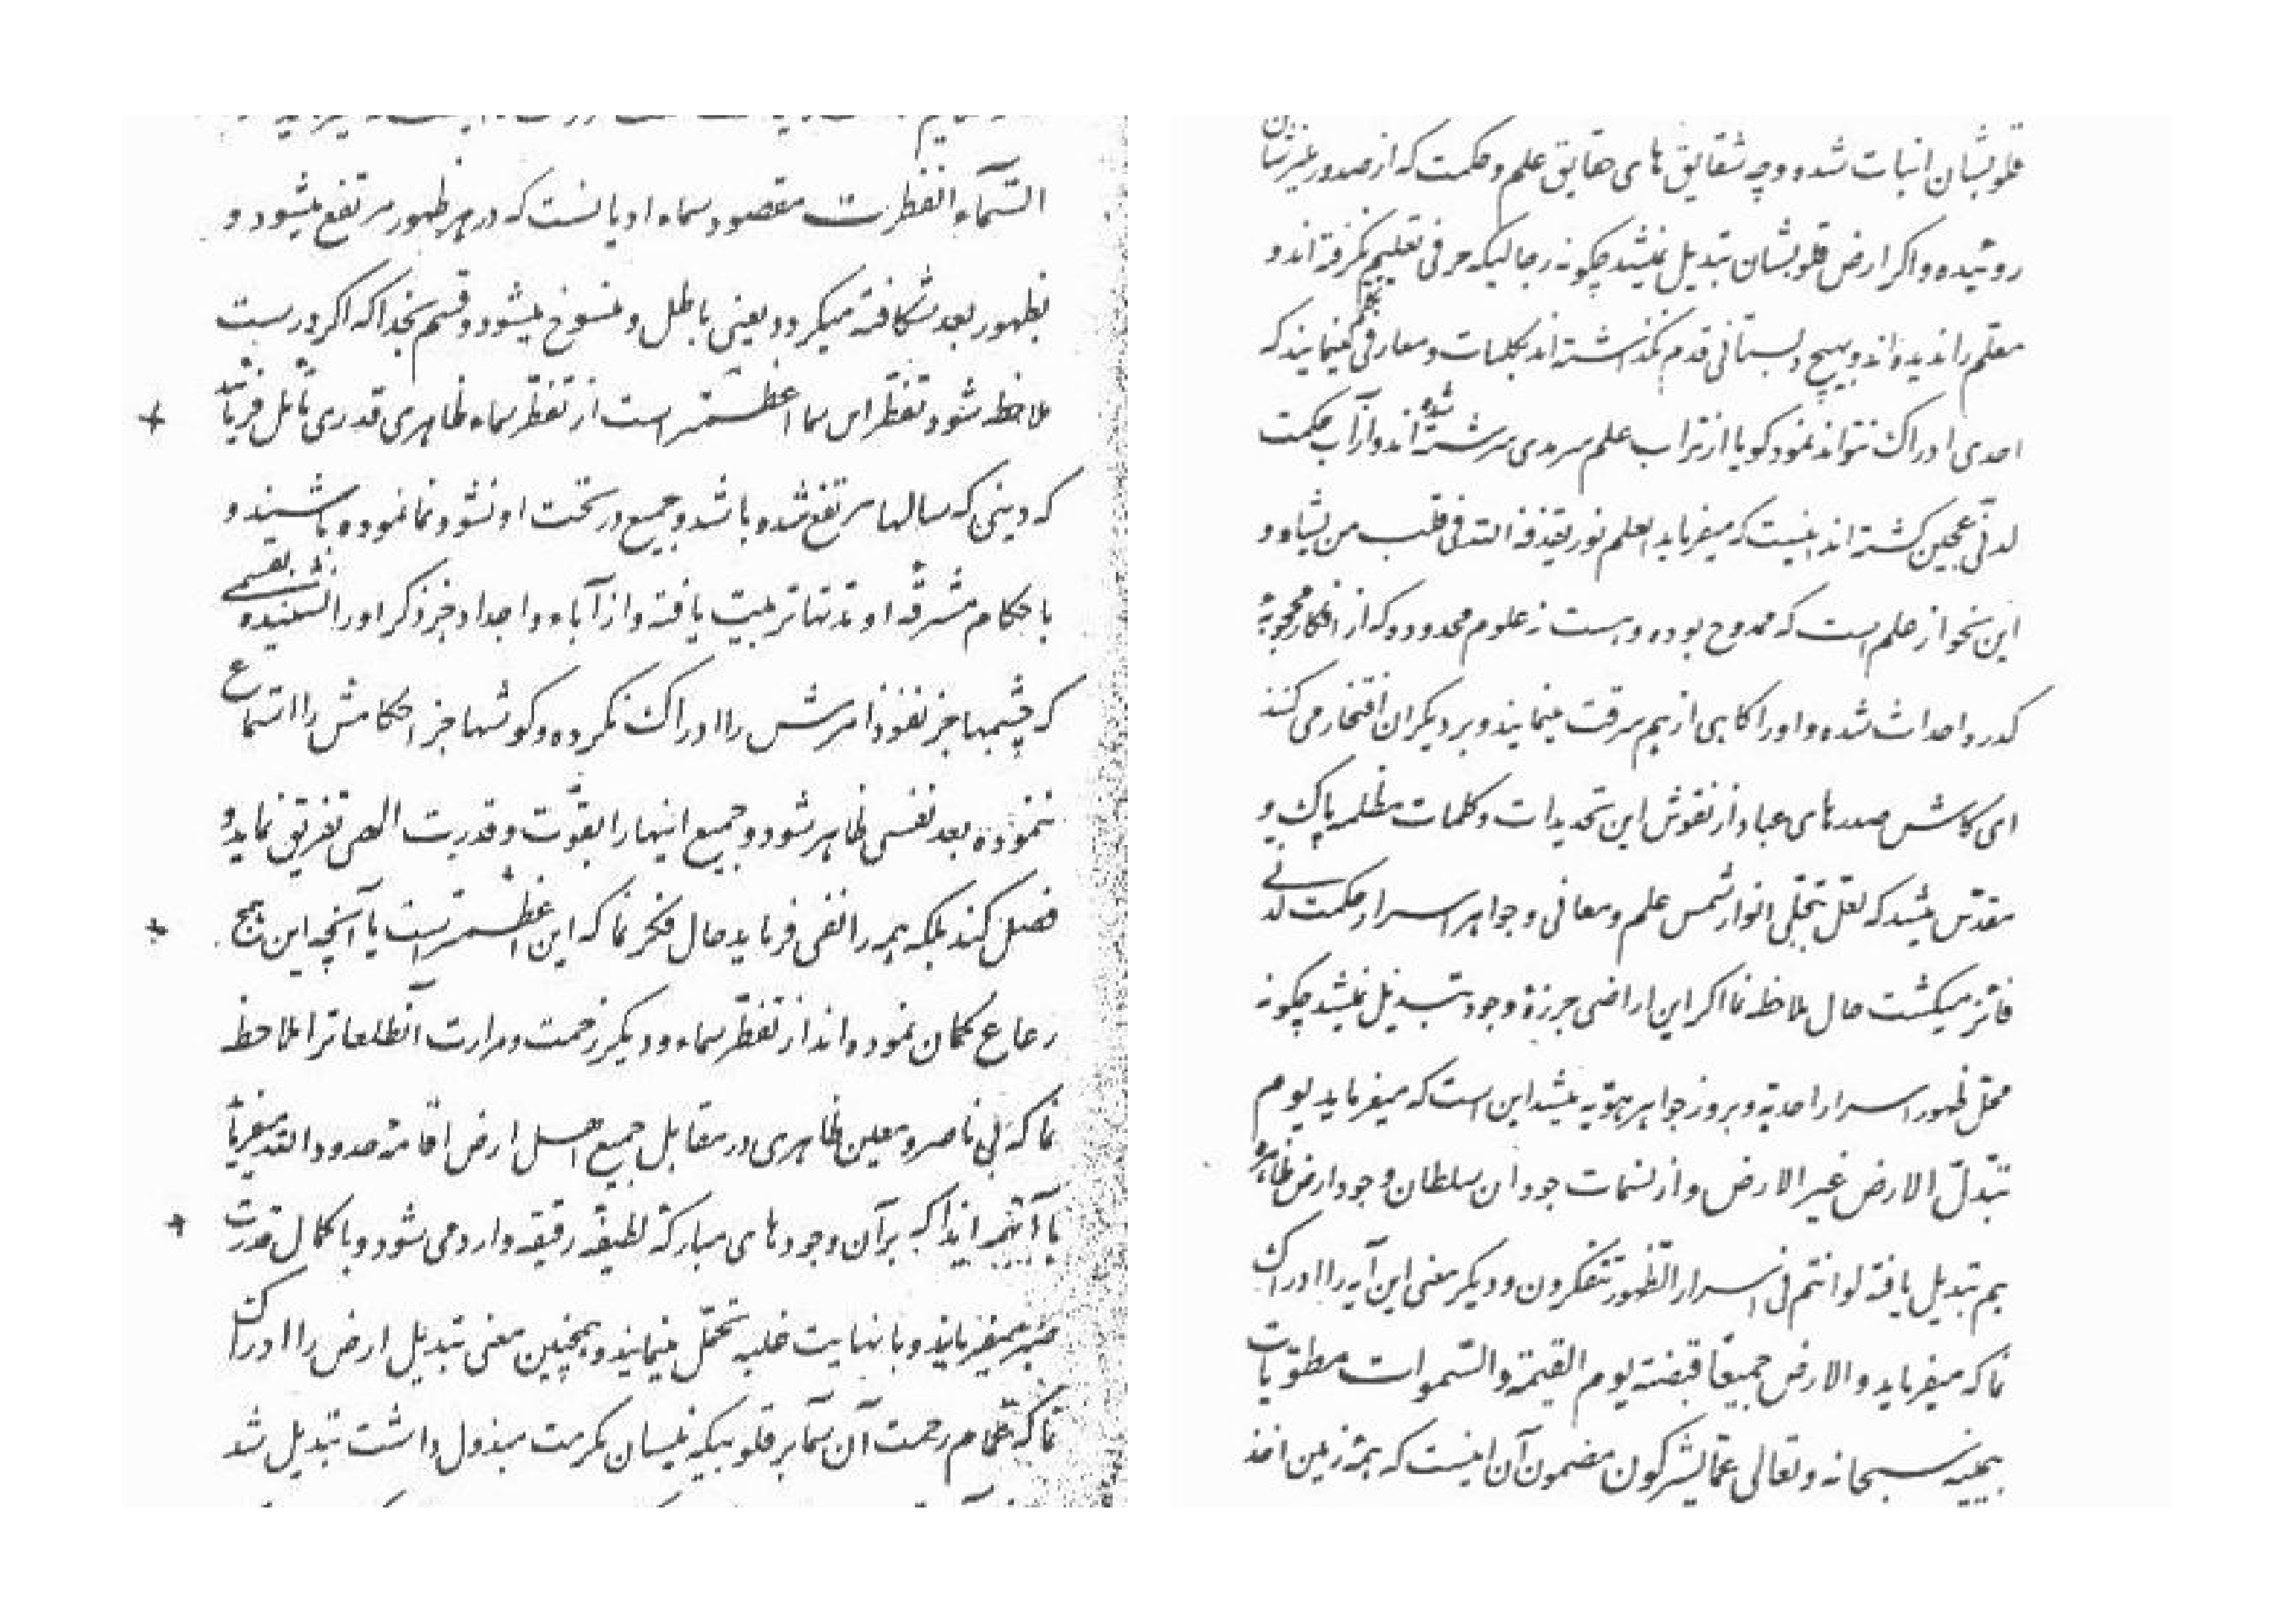 السّمآء انفطرت مقصود سماء ادیانست که در هر ظهور مرتفع میشود و
بظهور بعد شکافته میگردد یعنی باطل و منسوخ میشود و قسم بخدا که اگر درست
ملاحظه شود تفطّر این سما اعظمتر است از تفطّر سماء ظاهری قدری تأمّل فرمائید
که دینی که سالها مرتفع شده باشد و جمیع در تحت او نشو و نما نموده باشند و
باحکام مشرقه او مدّتها تربیت یافته و از آباء و اجداد جز ذکر او را نشنیده بقسمی
که چشمها جز نفوذ امرش را ادراک نکرده و گوشها جز احکامش را استماع
ننموده بعد نفسی ظاهر شود و جمیع اینها را بقوّت و قدرت الهی تفریق نماید و
فصل کند بلکه همه را نفی فرماید حال فکر نما که این اعظمتر است یا آنچه این همج
رعاع گمان نموده‌اند از تفطّر سماء و دیگر زحمت و مرارت آنطلعات را ملاحظه
نما که بی ناصر و معین ظاهری در مقابل جمیع اهل ارض اقامه حدود اللّه میفرمایند
با آنهمه ایذا که بر آن وجودهای مبارکه لطیفه رقیقه وارد می شود و با کمال قدرت
صبر میفرمایند و با نهایت غلبه تحمّل مینمایند و همچنین معنی تبدیل ارض را ادراک
نما که غمام رحمت آن سما بر قلوبیکه نیسان مکرمت مبذول داشت تبدیل شد
قلوبشان انبات شده و چه شقایق های حقایق علم و حکمت که از صدور منیرشان
روئیده و اگر ارض قلوبشان تبدیل نمیشد چگونه رجالیکه حرفی تعلیم نگرفته اند و
معلّم را ندیده‌اند و بهیچ دبستانی قدم نگذاشته اند بکلمات و معارفی تکلّم مینمایند که
احدی ادراک نتواند نمود گویا از تراب علم سرمدی سرشته شده‌اند و از آب حکمت
لدنّی عجین گشته اند اینست که میفرماید العلم نور یقذفه اللّه فی قلب من یشاء و
این نحو از علم است که ممدوح بوده و هست نه علوم محدوده که از افکار محجوبه
کدره احداث شده و او را گاهی از هم سرقت مینمایند و بر دیگران افتخار می کنند
ای کاش صدرهای عباد از نقوش این تحدیدات و کلمات مظلمه پاک و
مقدّس میشد که لعلّ بتجلّی انوار شمس علم و معانی و جواهر اسرار حکمت لدنّی
فائز میگشت حال ملاحظه نما اگر این اراضی جرزهٔ وجود تبدیل نمیشد چگونه
محلّ ظهور اسرار احدیّه و بروز جواهر هویّه میشد این است که میفرماید یوم
تبدّل الارض غیر الارض و از نسمات جود آن سلطان وجود ارض ظاهره
هم تبدیل یافته لو انتم فی اسرار الظّهور تتفکّرون و دیگر معنی این آیه را ادراک
نما که میفرماید و الارض جمیعًا قبضته یوم القیمة و السّموات مطویّات
بیمینه سبحانه و تعالی عمّا یشرکون مضمون آن اینست که همه زمین اخذ